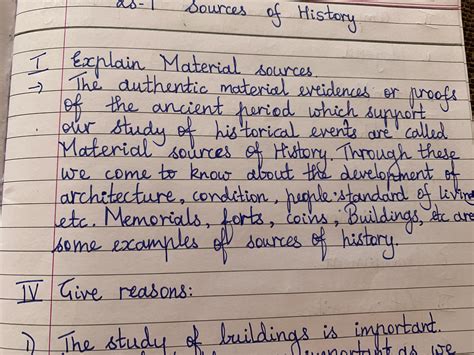 Ls-1 Sources of History
I Explain Material sources.
→ The authentic material eveidences or proofs
of the ancient period which support
our study of historical events are called
Material sources of History. Through these
we come to know about the development of
architecture, condition, people's standard of living
etc. Memorials, forts, coins, Buildings, etc are
some examples of sources of history.
IV Give reasons:
i) The study of buildings is important.
important as we